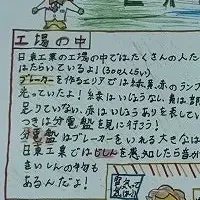 工場の中
日東工業の工場の中ではたくさんの人た
はたらいているよ!(300人くらい)
ブレーカーを作るエリアでは緑、黄、赤のランプ
光っていたよ!緑はいじょうなし、黄は部
足りていない、赤はいじょうありを表してい
つぎは分電盤を見に行こう!
分電盤はブレーカーをいれる大きなは
日東工業ではじしんを感知したら自
きいしんのやつも
あるんだよ!